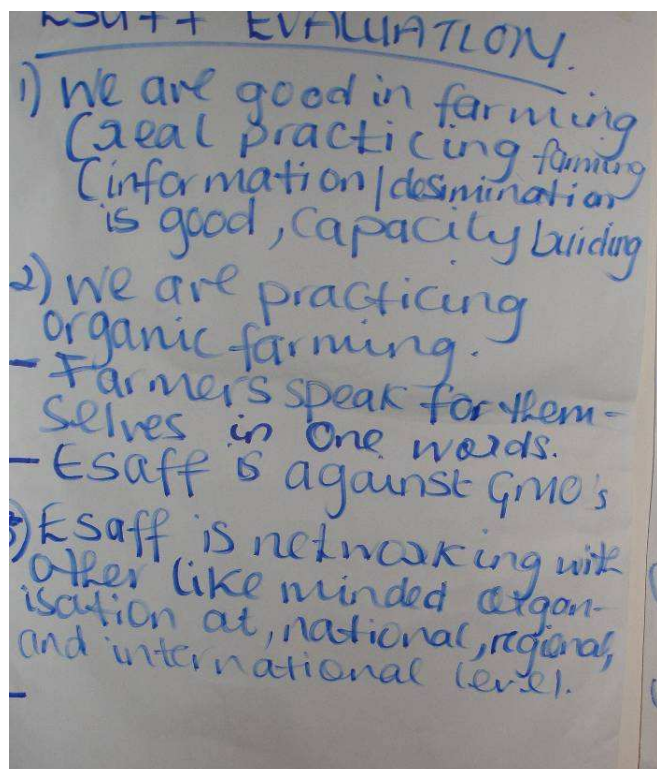 ESAFF EVALUATION.
1) We are good in farming
(real practicing farming
(information/desimination
is good, capacity buiding
2) We are practicing
organic farming.
- Farmers speak for them-
selves in one words.
- Esaff is against GMO's
3) Esaff is networking with
other like minded organ-
isation at, national, regional,
and international level.
-